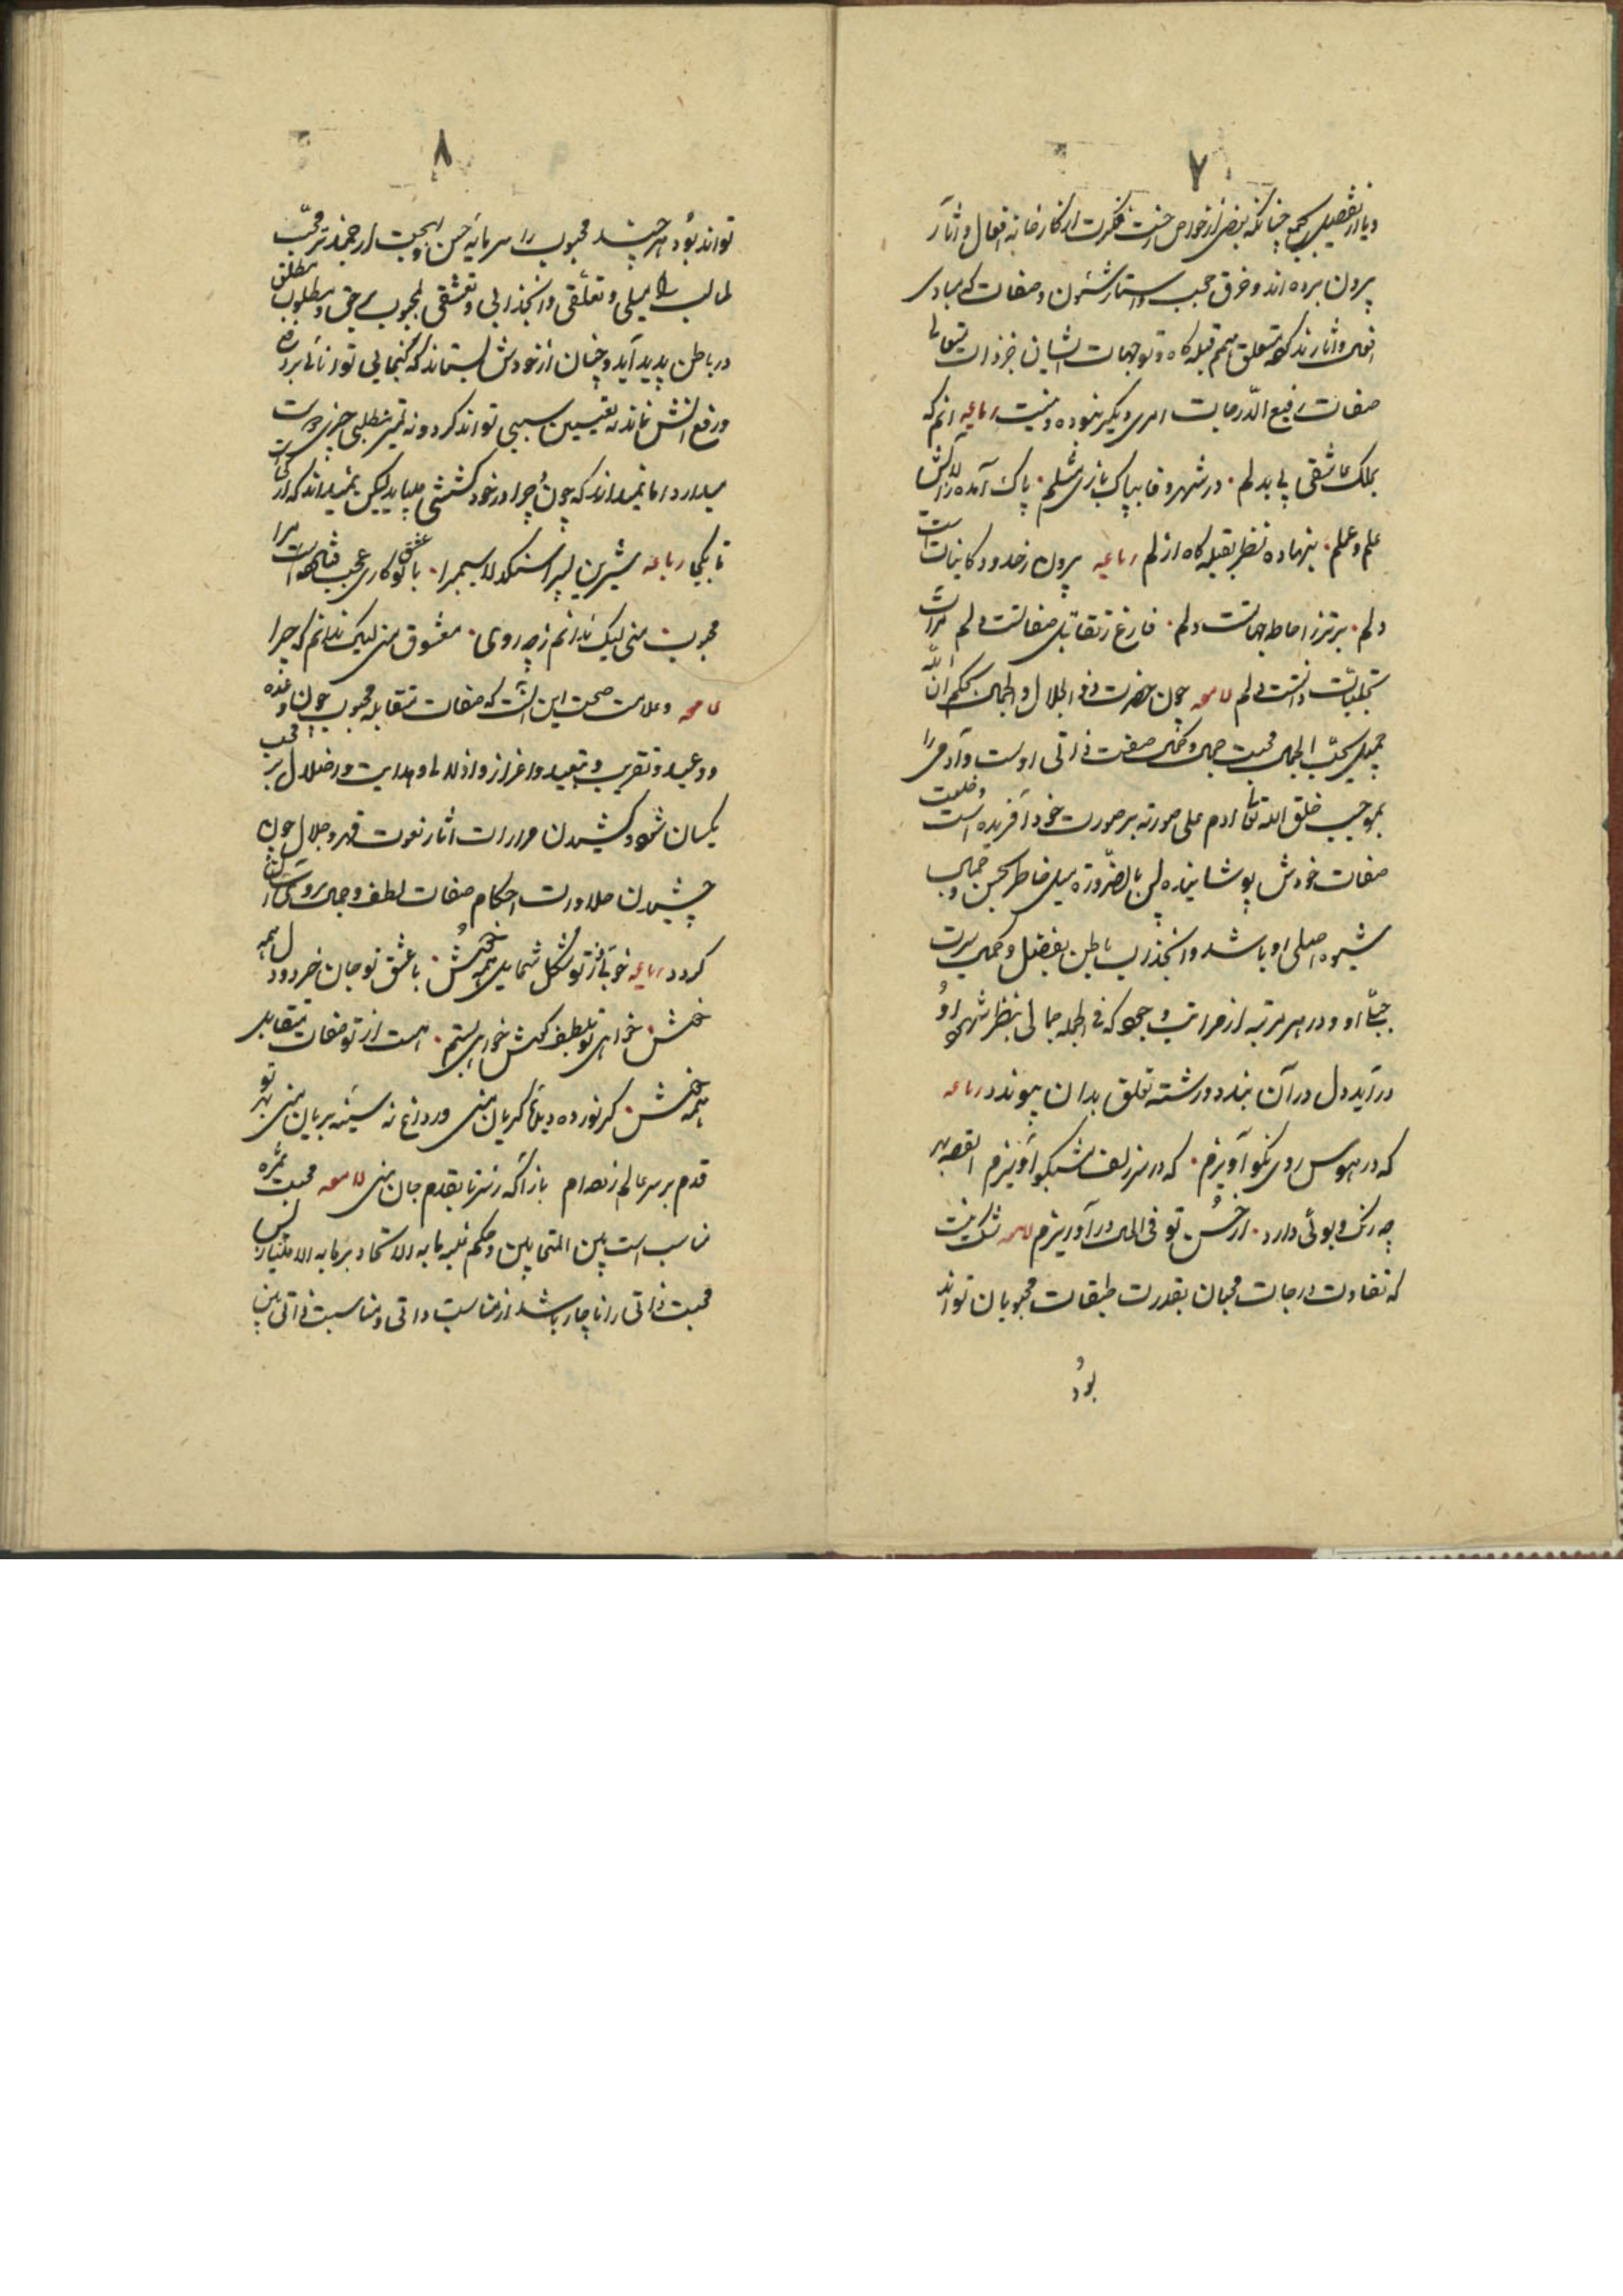 ۷
بیرون برده اند و خرق حجب و استار شئون و صفات که مبادی
افعال و آثارند کرده متعلق همم قبله کاه و توجهات ایشان جز ذات متعالی
صفات رفیع الدرجات امری دیگر نبوده و نیست رباعیه انم که
بملک عاشقی بی بدلم در شهر وفا بپاک بازی مثلم پاک آمده ز آلایش
علم و عملم بنهاده نظر بقبله کاه ازلم رباعیه بیرون ز حدود کاینات است
دلم برتر ز احاطه جهات است دلم فارغ ز تقابل صفات است دلم مرآت
تجلیات ذات است دلم لامعه چون حضرت ذو الجلال و الجمال بحکم ان الله
جمیل یحب الجمال محبت جمال و کمال صفت ذاتی اوست و آدمی را
بموجب خلق الله تعا ادم علی صورته بر صورت خود آفریده است و خلعت
صفات خودش پوشانیده پس بالضرورة میل خاطر بحسن و جمال
شیوه اصلی او باشد و انجذاب باطن بفضل و کمال سیرت
جبلی او و در هر مرتبه از مراتب وجود که فی الجمله جمالی بنظر شهود او
درآید دل در آن بندد و رشته تعلق بدان پیوندد رباعیه
که در هوس روی نکو آویزم که در سر زلف مشکبو آویزم القصه بهر
چه رنک و بوئی دارد از حسن تو فی الحال در آو ریزم لامعه شک نیست
که تفاوت درجات محبان بقدرت طبقات محبوبان تواند
بود
۸
تواند بود هر چند محبوب را سرمایه حسن و بهجت ارجمندتر محب
طالب را میلی و تعلقی و انجذابی و تعشقی بمحبوب حق و مطلوب مطلق
در باطن پدید آید و چنان از خودش بستاند که کنجایی توانائی بر دفع
و رفع آنش نماند نه تعیین سببی تواند کرد و نه تمیز مطلبی چیزی دوست
میدارد اما نمیداند که چون و چرا در خود کششی مییابد لیکن نمیداند که از کجاست
تا بکجا رباعیه شیرین پسرا سنکدلا سیمبرا با عشق تو کاری عجب فتاده است مرا
محبوب منی لیک ندانم ز چه روی معشوق منی لیک ندانم که چرا
لامعه و علامت صحت این آنست که صفات متقابله محبوب چون وعده
و وعید و تقریب و تبعید و اعزاز و اذلال و هدایت و اضلال بر محب
یکسان شود و کشیدن مرارات آثار نعوت قهر و جلال چون
چشیدن حلاوات احکام صفات لطف و جمال بروی آسان
کردد رباعیه خوبی و ز تو شکل شمایل همه خوش با عشق تو جان خرد و دل همه
خوش خواهی تو بلطف کش خواهی بستم هست از تو صفات متقابل
همه خوش کر نور ده دیده کریان منی ور داغ نه سینه بریان منی بهر تو
قدم بر سر عالم زده ام بازآ که ز سر تا بقدم جان منی لامعه محبت ثمره
مناسبت است بین المتحابین و حکم غلبه مابه الاتحاد بر مابه الامتیاز پس
محبت ذاتی را ناچار باشد از مناسبت ذاتی و مناسبت ذاتی بین